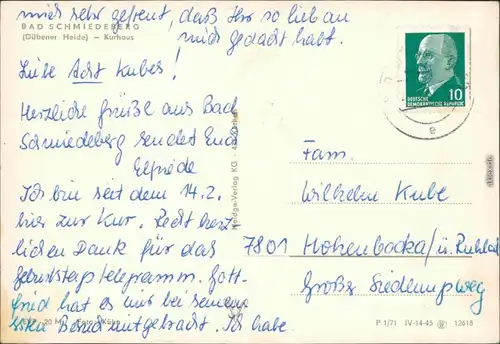 mich sehr gefreut, daß Ihr so lieb an
mich gedacht habt.
BAD SCHMIEDEBERG
(Dübener Heide) — Kurhaus
Liebe Acht Kubes!
Herzliche Grüße aus Bad
Schmiedeberg sendet Euch
Elfriede
Ich bin seit dem 14.2.
hier zur Kur. Recht herz-
lichen Dank für das
Geburtstagstelegramm. Gott-
fried hat es mir bei seinem
Besuch mitgebracht. Ich habe
20 M
Verlag KG
10
DEUTSCHE
DEMOKRATISCHE REPUBLIK
e
Fam.
Wilhelm Kube
7801 Hohenbocka/ü. Ruhland
Große Siedlungsweg
P 1/71 IV-14-45 12618